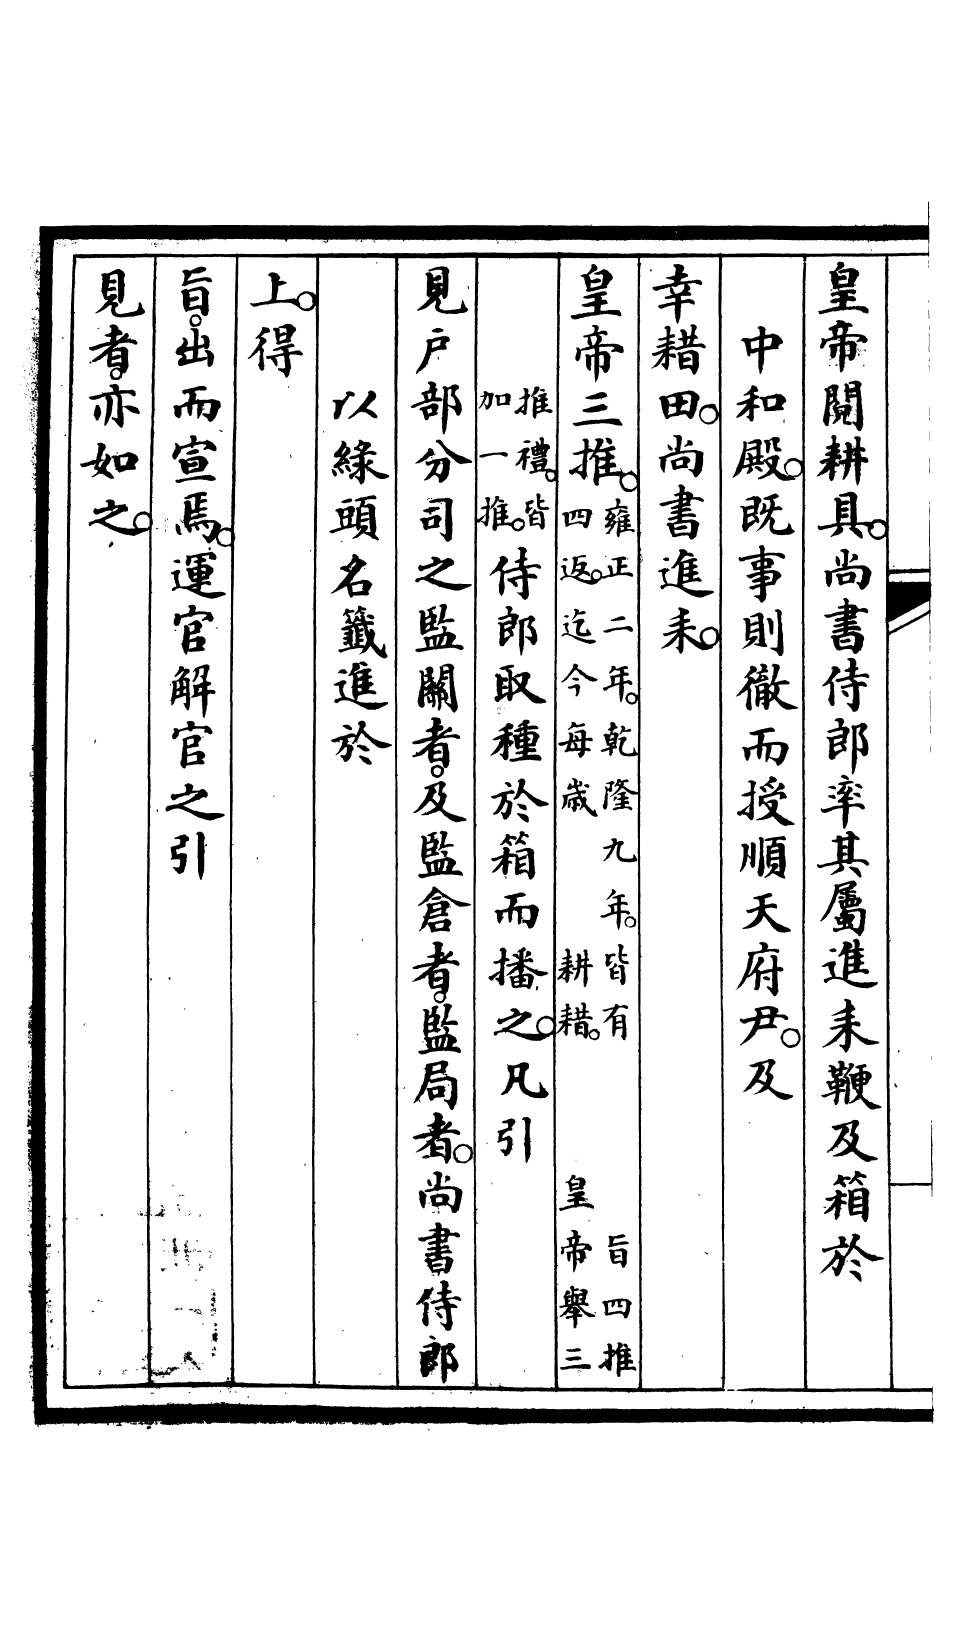 皇帝閱耕具。尚書侍郎率其屬進耒鞭及箱於
中和殿。既事則徹而授順天府尹。及
幸耤田。尚書進耒。
皇帝三推。
雍正二年。乾隆九年。皆有旨四推
四返。迄今每歲耕耤。皇帝舉三
推禮。皆
加一推。
侍郎取種於箱而播之。凡引
見戶部分司之監關者。及監倉者。監局者。尚書侍郎
以綠頭名籤進於
上。得
旨。出而宣焉。運官解官之引
見者。亦如之。